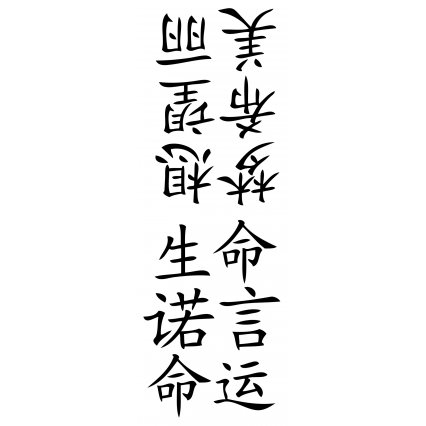 梦想
希望
美丽
生命
诺言
命运